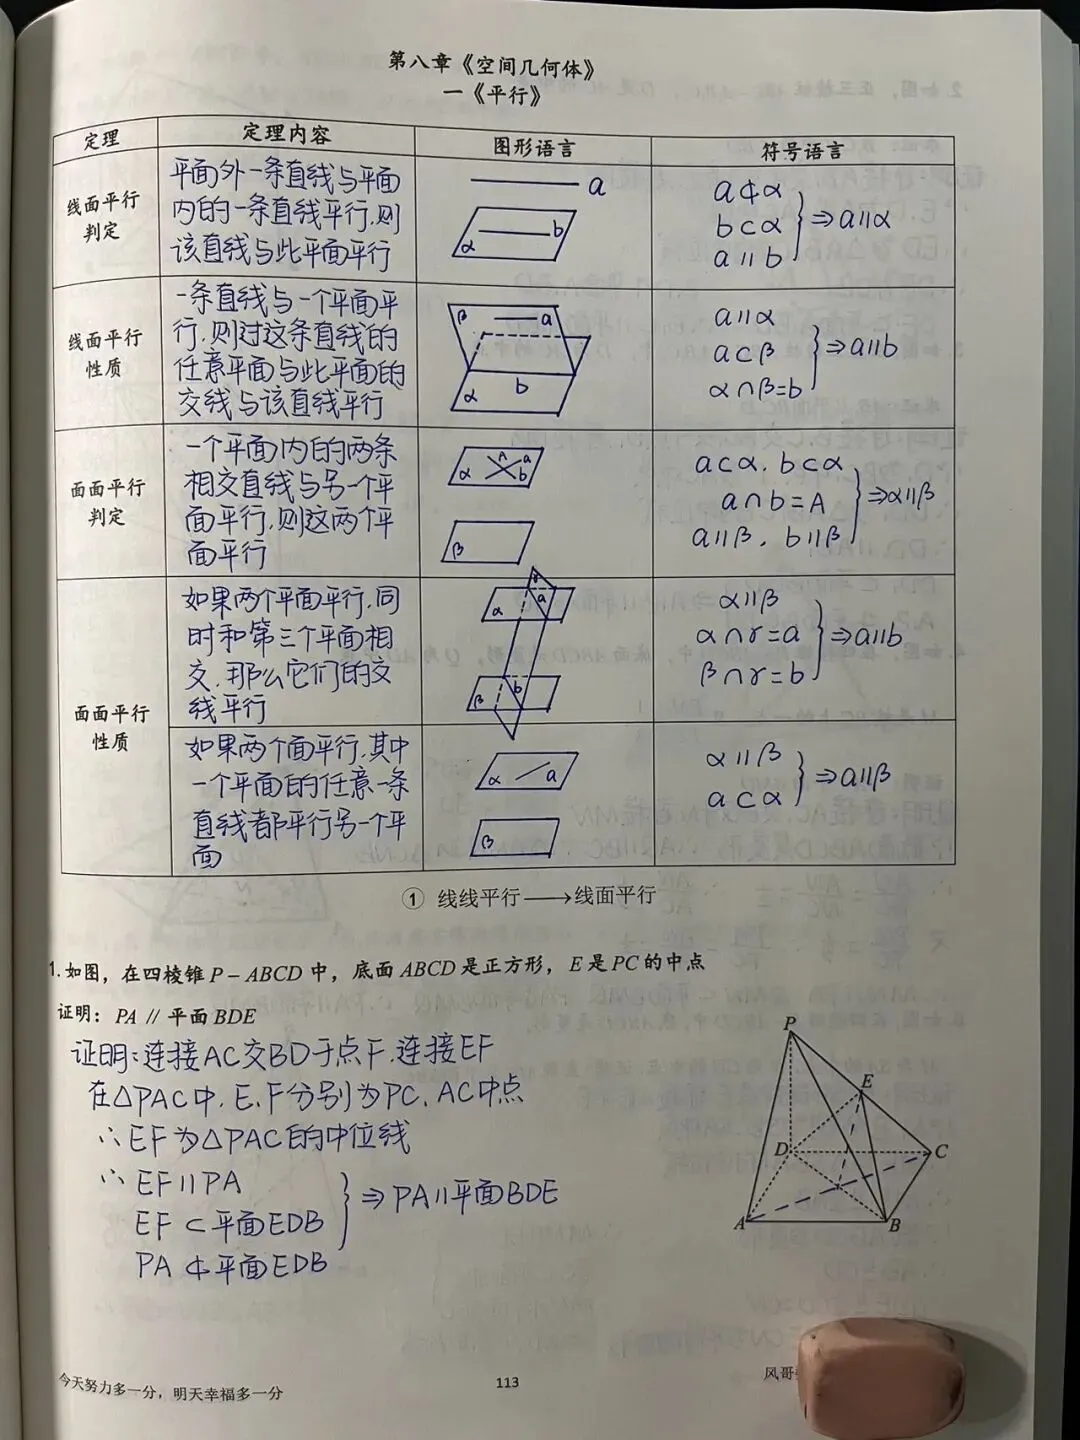 第八章《空间几何体》
一《平行》
定理 定理内容 图形语言 符号语言
线面平行
判定
平面外一条直线与平面
内的一条直线平行.则
该直线与此平面平行
a
b
α
a⊄α
b⊂α
a∥b
⇒a∥α
线面平行
性质
一条直线与一个平面平
行.则过这条直线的
任意平面与此平面的
交线与该直线平行
β a
α b
a∥α
a⊂β
α∩β=b
⇒a∥b
面面平行
判定
一个平面内的两条
相交直线与另一个平
面平行.则这两个平
面平行
α A a b
β
a⊂α. b⊂α
a∩b=A
a∥β. b∥β
⇒α∥β
面面平行
性质
如果两个平面平行.同
时和第三个平面相
交.那么它们的交
线平行
α a
β b
α∥β
α∩r=a
β∩r=b
⇒a∥b
如果两个面平行.其中
一个平面的任意一条
直线都平行另一个平
面
α a
β
α∥β
a⊂α
⇒a∥β
① 线线平行⟶线面平行
1.如图，在四棱锥 P－ABCD 中，底面 ABCD 是正方形，E 是 PC 的中点
证明：PA // 平面 BDE
证明:连接AC交BD于点F.连接EF
在△PAC中.E.F分别为PC.AC中点
∴EF为△PAC的中位线
∴EF∥PA
EF⊂平面EDB
PA⊄平面EDB
⇒PA∥平面BDE
P
E
D
C
A
B
今天努力多一分，明天幸福多一分
113
风哥